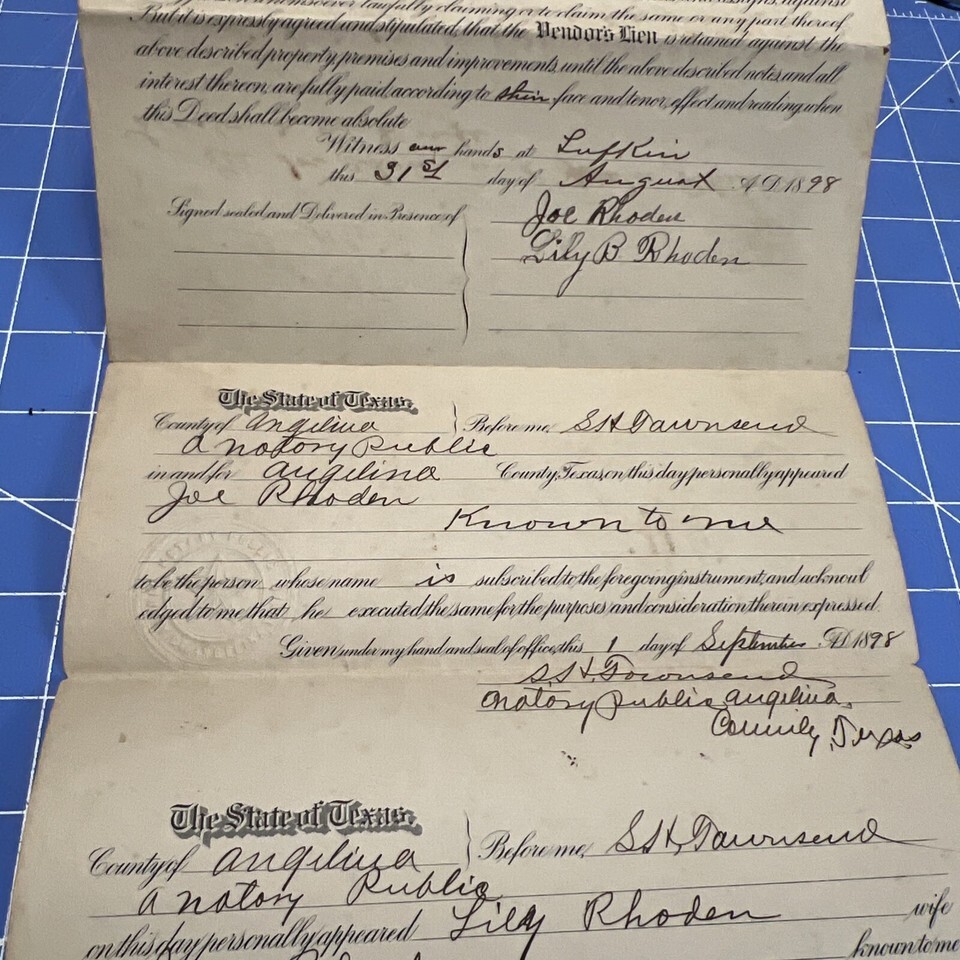 lawfully claiming or to claim the same or any part thereof
But it is expressly agreed and stipulated, that the Vendor's Lien is retained against the
above described property, premises and improvements, until the above described notes, and all
interest thereon, are fully paid according to their face and tenor, effect and reading, when
this Deed shall become absolute
Witness our hands at Lufkin
this 31st day of August A.D. 1898
Signed sealed and Delivered in Presence of
Joe Rhoden
Lily B Rhoden
The State of Texas.
County of Angelina } Before me, S H Townsend
a notary Public
in and for Angelina County, Texas, on this day personally appeared
Joe Rhoden
Known to me
to be the person whose name is subscribed to the foregoing instrument, and acknowl
edged to me that he executed the same for the purposes and consideration therein expressed.
Given under my hand and seal of office, this 1 day of September A.D. 1898
S.H. Townsend
Notary Public, Angelina,
County, Texas
The State of Texas.
County of Angelina } Before me, S H Townsend
a notary Public
on this day personally appeared Lily Rhoden wife
known to me